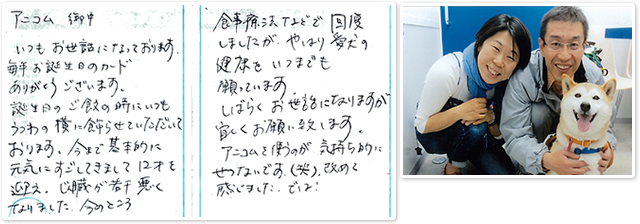 アニコム 御中
いつもお世話になっております。
毎年お誕生日のカード
ありがとうございます。
誕生日のご飯の時にいつも
うつわの横に飾らせていただいて
おります。今まで基本的に
元気にすごしてきまして12才を
迎え、心臓が若干悪く
なりました。今のところ
食事療法などで回復
しましたが、やはり愛犬の
健康をいつまでも
願っています。
しばらくお世話になりますが
宜しくお願い致します。
アニコムを使うのが気持ち的に
せつないです。(笑)。改めて
感じました。では!